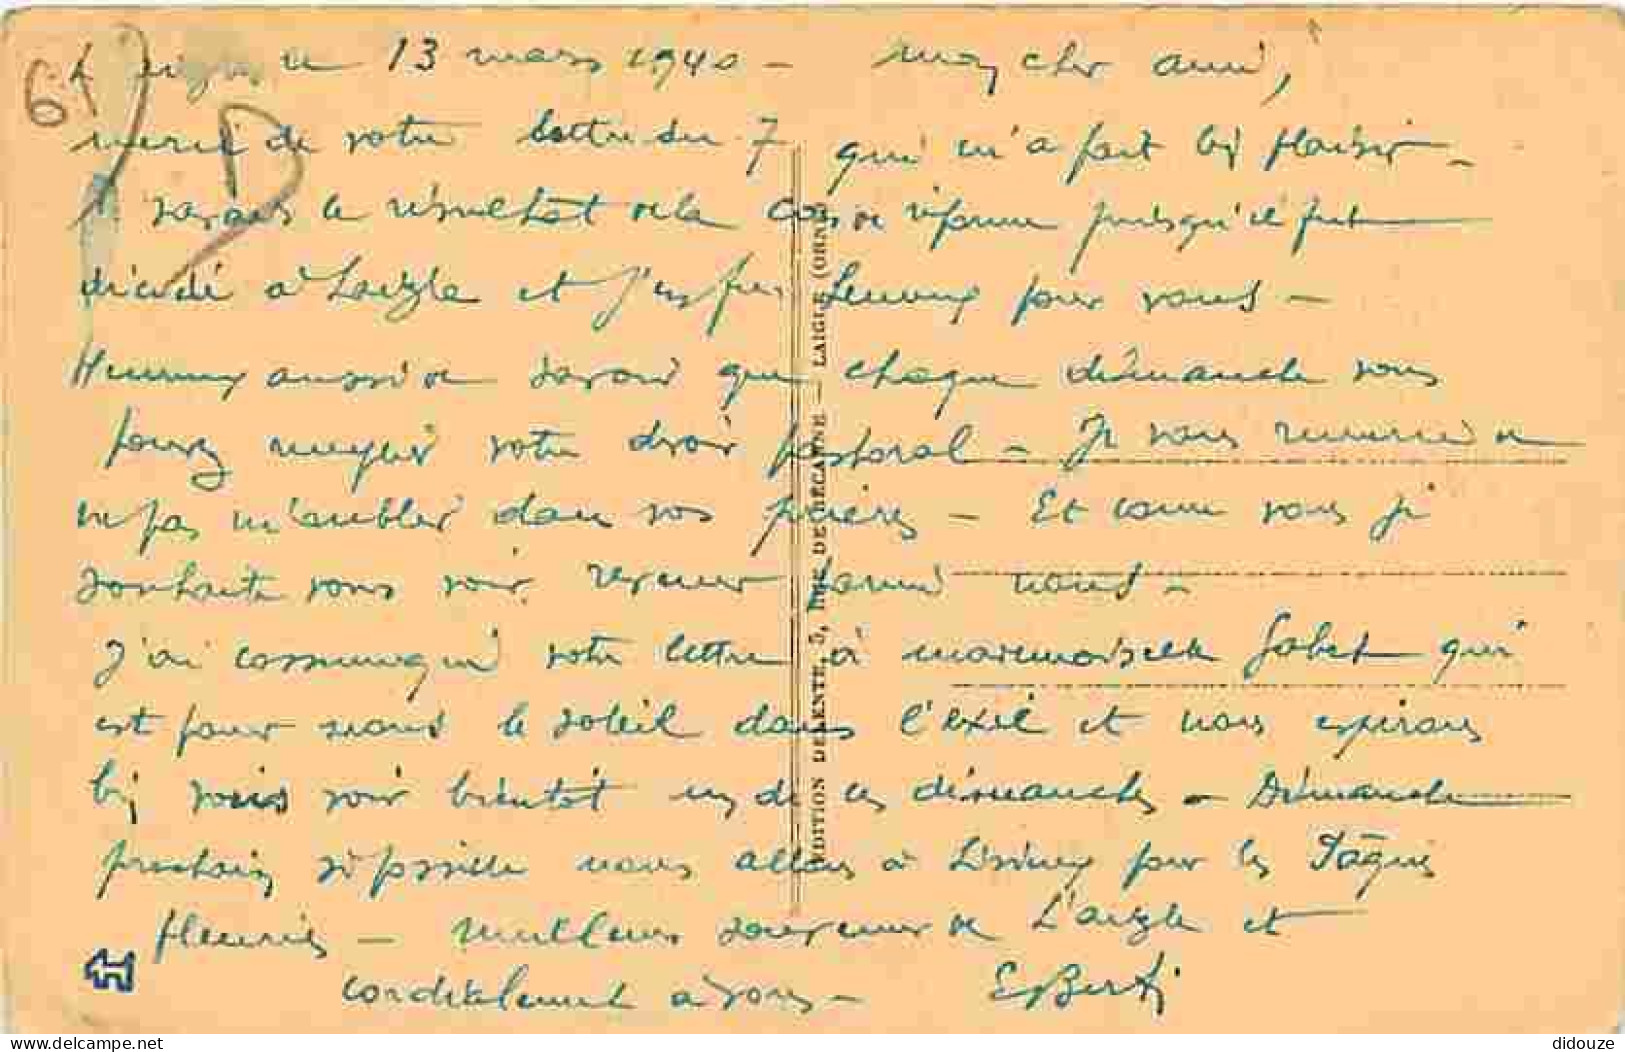 le 13 mars 1940 - mon cher ami,
merci de votre lettre du 7 qui m'a fait bien plaisir -
savais le résultat de la réforme puisqu'il fut
décidé à Laigle et j'en fus heureux pour vous -
Heureux aussi de savoir que chaque dimanche vous
pouvez votre droit pastoral - Je vous remercie de
ne pas m'oublier dans vos prières - Et comme vous je
souhaite vous voir revenir parmi nous -
J'ai communiqué votre lettre à mademoiselle Gobet qui
est pour nous le soleil dans l'exil et nous espérons
bien vous voir bientôt un de ces dimanches - Dimanche
prochain si possible nous allons à Lisieux pour les Pâques
fleuries - meilleur souvenir de L'aigle et
cordialement à vous - E Berti
6
D
EDITION DELENTE, 5, RUE DE BÉCANNE — LAIGLE (ORNE)
didouze
www.delcampe.net